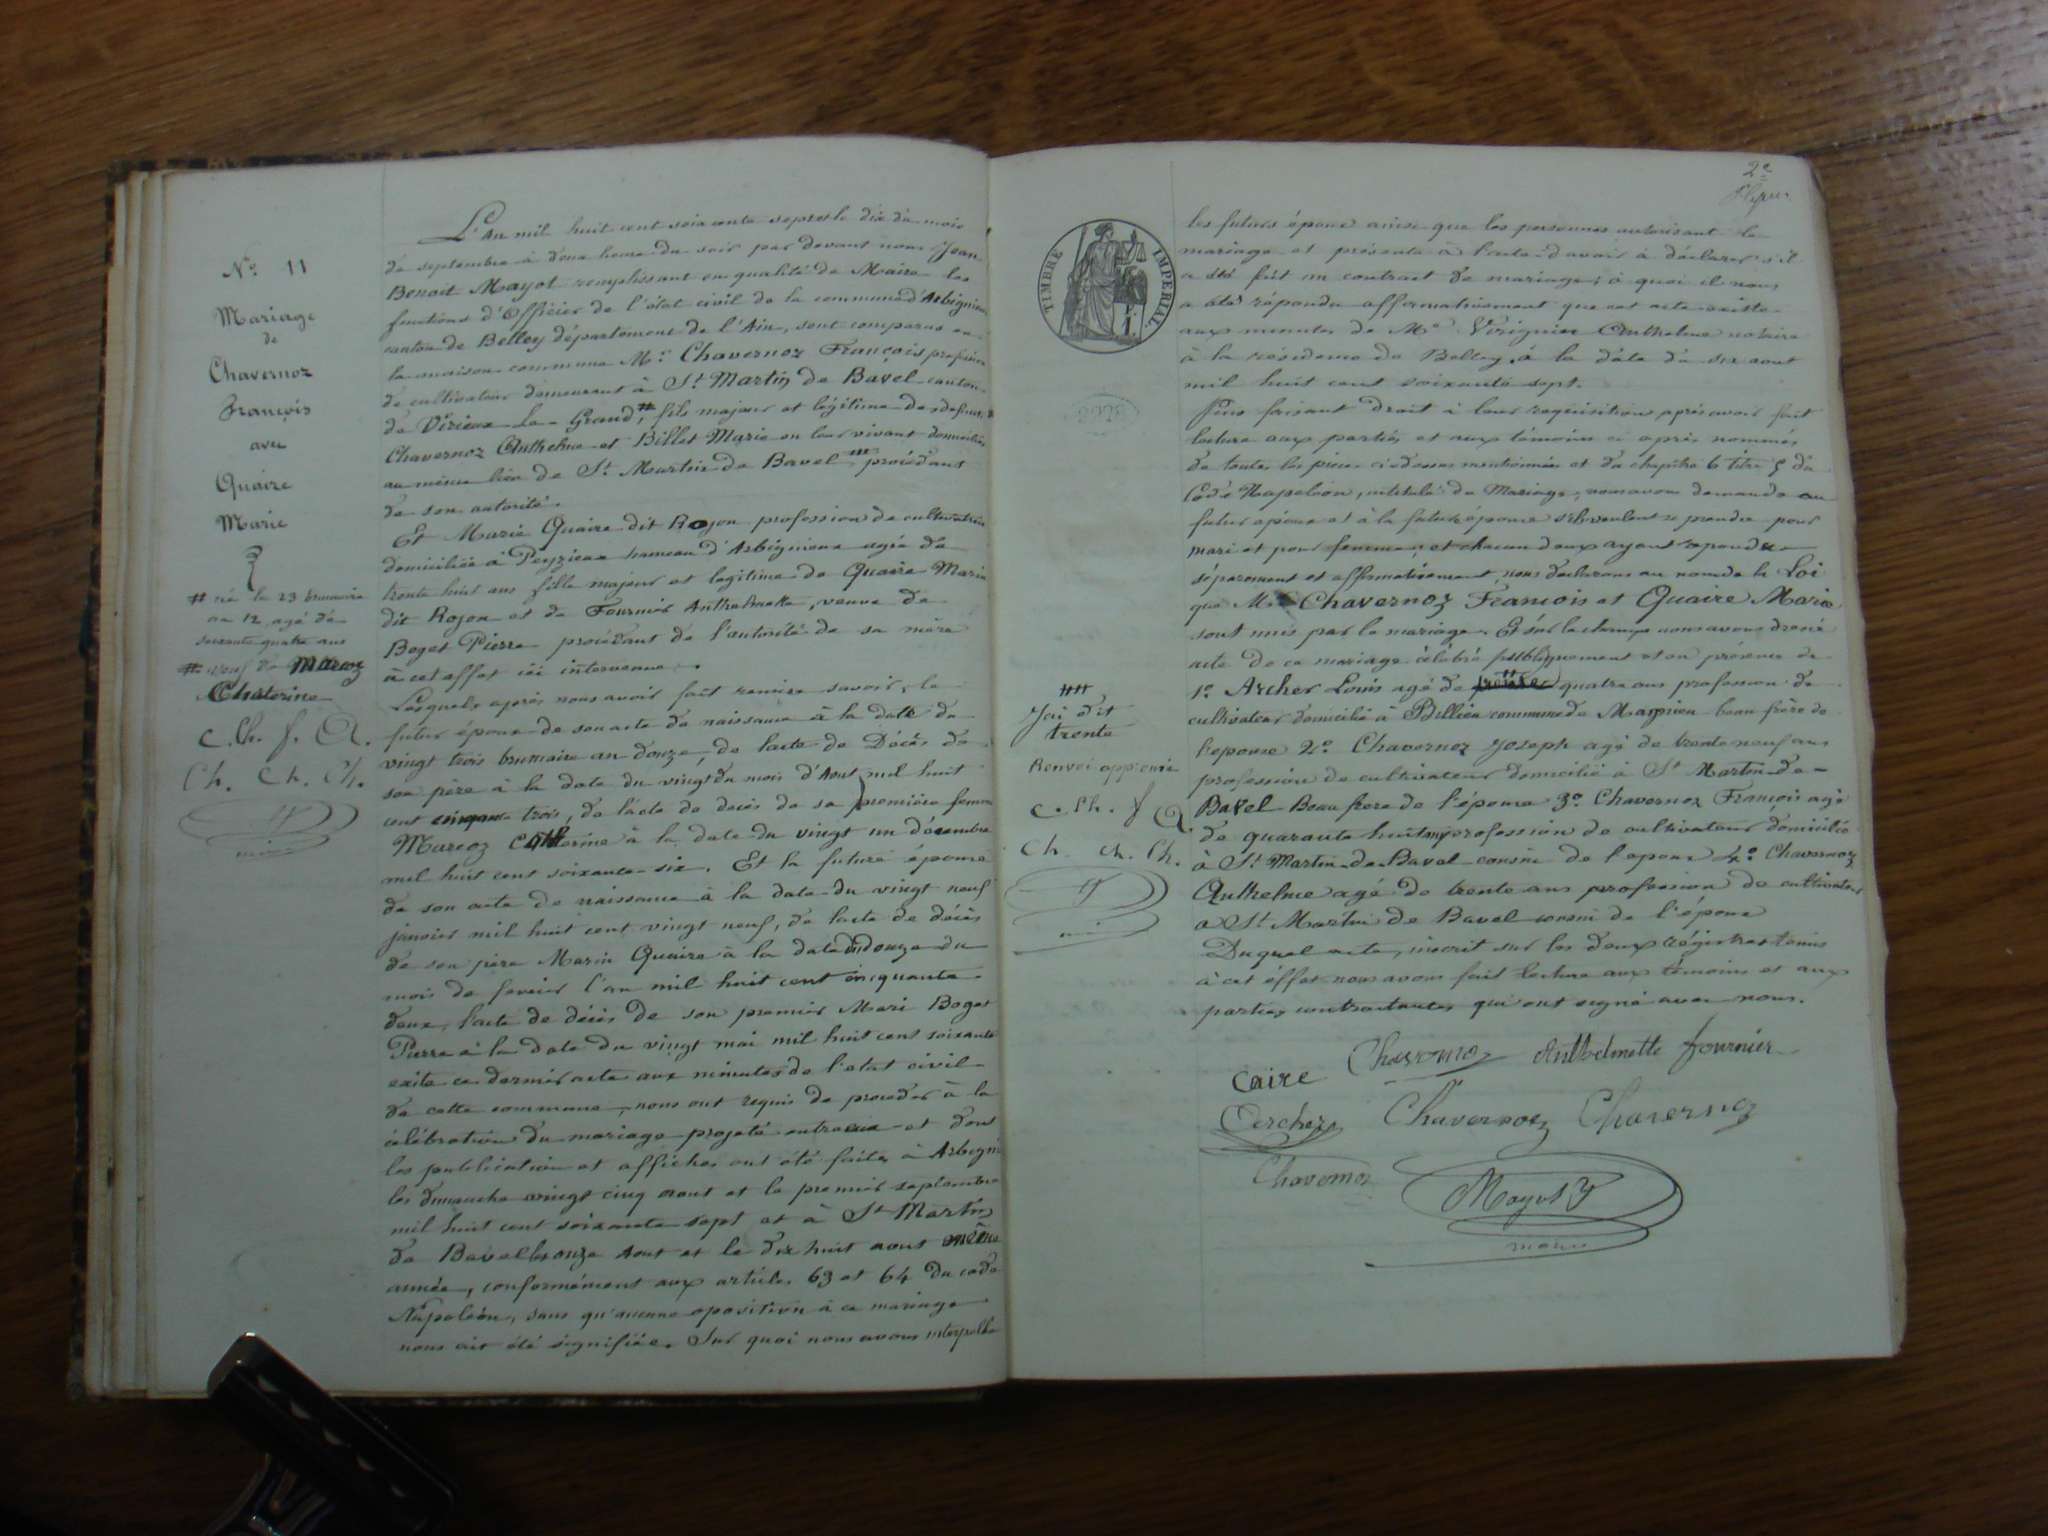 N° 11
Mariage
de
Chavernoz
François
avec
Quaire
Marie
# né le 23 brumaire
an 12 agé de
soixante quatre ans
# veuf de Marcoz
Chaterine
C. Ch. f. A.
Ch. Ch. Ch.
L'an mil huit cent soixante sept et le dix du mois
de septembre à douze heure du soir par devant nous Jean
Benoit Mayot remplissant en qualité de Maire les
fonctions d'Officier de l'état civil de la commune d'Arbignieu
canton de Belley département de l'Ain, sont comparus en
la maison commune Mr. Chavernoz François profession
de cultivateur demeurant à St Martin de Bavel canton
de Virieux le Grand, # fils majeur et légitime de defunt
Chavernoz Anthelme et Billet Marie en leur vivant domiciliés
au même lieu de St Martin de Bavel procédant
de son autorité.
Et Marie Quaire dit Rojon profession de cultivatrice
domiciliée à Peyzieux hameau d'Arbignieux agée de
trente huit ans fille majeur et legitime de Quaire Marin
dit Rojon et de Fournier Anthelmette, veuve de
Boget Pierre procédant de l'autorité de sa mère
à cet effet ici intervenue.
Lesquels après nous avoir fait remise savoir, le
futur époux de son acte de naissance à la date du
vingt trois brumaire an douze, de l'acte de Décès de
son père à la date du vingt du mois d'Aout mil huit
cent cinquante trois, de l'acte de decès de sa première femme
Marcoz Catherine à la date du vingt un décembre
mil huit cent soixante-six. Et la future épouse
de son acte de naissance à la date du vingt neuf
janvier mil huit cent vingt neuf, de l'acte de décès
de son père Marin Quaire à la date du douze du
mois de fevrier l'an mil huit cent cinquante
deux, l'acte de décès de son premier Mari Boget
Pierre à la date du vingt mai mil huit cent soixante
exite ce dernier acte aux minutes de l'etat civil
de cette commune, nous ont requis de proceder à la
célébration du mariage projeté entre eux et dont
les publication et affiches ont été faites à Arbigni
les dimanche vingt cinq aout et le premier septembre
mil huit cent soixante sept et à St Martin
de Bavel le onze Aout et le dix huit aout même
année, conformément aux articles 63 et 64 du code
Napoléon, sans qu'aucune oposition à ce mariage
nous ait été signifiée. Sur quoi nous avons interpellé
2e
TIMBRE IMPERIAL
les futurs époux ainsi que les personnes autorisant le
mariage et présents à l'acte d'avoir à déclarer s'il
a été fait un contract de mariage; à quoi il nous
a été répondu affirmativement que cet acte existe
aux minutes de Me Virignier Anthelme notaire
à la résidence de Belley, à la date du six aout
mil huit cent soixante sept.
faisant droit à leur requisition après avoir fait
lecture aux parties et aux témoins ci après nommés
de toutes les pieces ci dessus mentionnées et du chapitre 6 titre 5 du
Code Napoléon, intitulé du Mariage, nous avons demandé au
futur epoux et à la future épouse s'ils veulent se prendre pour
mari et pour femme, et chacun deux ayant repondu
séparement et affirmativement, nous declarons au nom de la Loi
que Mr Chavernoz François et Quaire Marie
sont unis par le mariage. Et sur le champ nous avons dressé
acte de ce mariage célébré publiquement et en présence de
1° Archer Louis agé de quatre ans profession de
cultivateur domicilié à Billieu commune de Magnieu beau frère de
l'epouse 2° Chavernoz Joseph agé de trente neuf ans
profession de cultivateur domicilié à St Martin-de-
Bavel Beau frere de l'épouse 3° Chavernoz François agé
de quarante huit ans profession de cultivateur domicilié
à St Martin-de-Bavel cousin de l'epoux 4° Chavernoz
Anthelme agé de trente ans profession de cultivateur
a St Martin de Bavel cousin de l'époux
Duquel acte, inscrit sur les deux régistres tenus
à cet éffet nous avons fait lecture aux témoins et aux
parties contractantes qui ont signé avec nous.
##
J'ai dit
trente
Renvoi approuvé
C. Ch. f A.
Ch. Ch. Ch.
Caire Chavernoz Anthelmette fournier
Archer Chavernoz Chavernoz
Chavernoz Mayot
maire